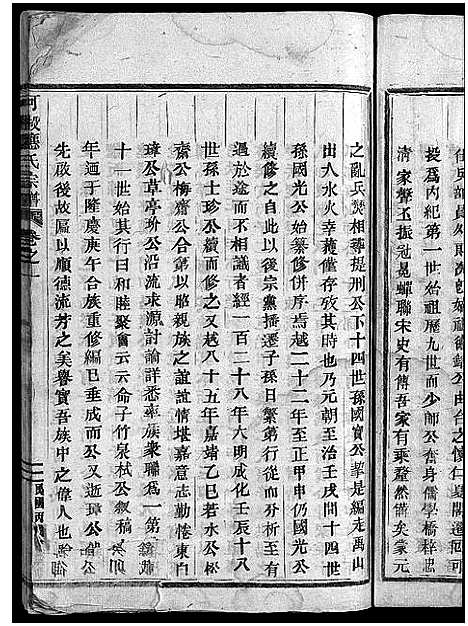 員外郎次
授爲丙紀第一世始祖歷九世而少師公在身儒學橋梓忠
清家聲玉振冠冕蟬聯宋史有傳吾家有乘奎然備矣家元
之亂兵焚相尋提刑公下十四世孫國寶公挈是編走萬山
出入水火幸蓭僅存攷其時也乃元朝至治壬戌間十四世
孫國光公始纂修併序焉越二十二年至正甲申仍國光公
續修之自此以後宗黨播遷子孫日繁第行從而分析至有
遇於途而不相識者經一百二十八年六明成化壬辰十八
世孫士珍公續而修之又越八十五年嘉靖乙巳若水公松
齋公梅齋公合第以昭親族之誼誼情堪嘉意志勤惓東白
璋公草亭玠公沿流求源討論詳悉率族衆聯爲一第
十一世始其目曰和睦聚寶云云命子竹泉栻公叙稿
年迺于隆慶庚午台族重修編已垂成而公又逝璋公
先啟後故區以順德流芳之美譽實吾族中之偉人也
可
應氏宗譜
卷之一
民國丙